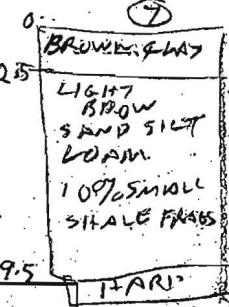 7
0
BROWN CLAY
2.5
LIGHT
BROW
SAND SILT
LOAM
10% SMALL
SHALE FRAGS
9.5
HARD